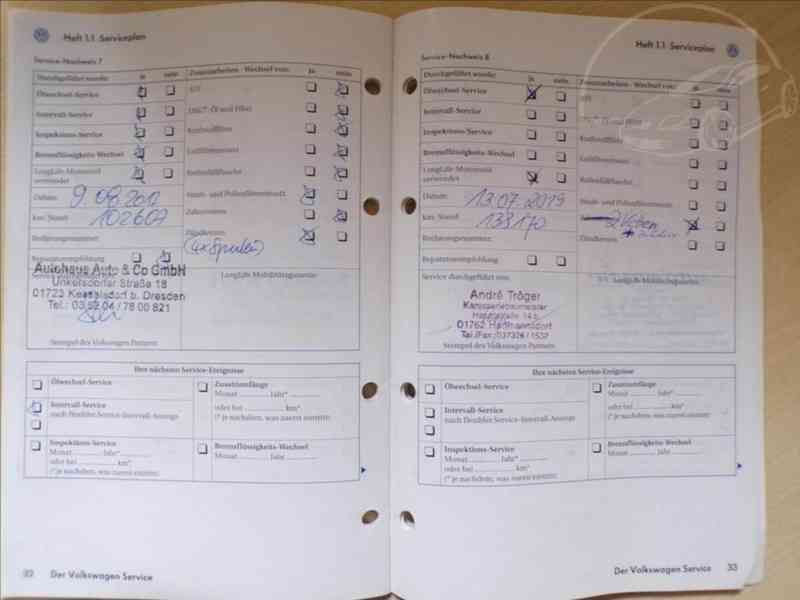 Heft 1.1 Serviceplan
Service-Nachweis 7
Durchgeführt wurde: ja nein
Ölwechsel-Service
Intervall-Service
Inspektions-Service
Bremsflüssigkeits-Wechsel
LongLife-Motorenöl
verwendet
Datum: 9.08.201
km-Stand: 102607
Rechnungsnummer:
Reparaturempfehlung
Zusatzarbeiten - Wechsel von: ja nein
Öl und Filter
Kraftstofffilter
Luftfiltereinsatz
Reifenfüllflasche
Staub- und Pollenfiltereinsatz
Zahnriemen
Zündkerzen
Autohaus Auto & Co GmbH
Unkersdorfer Straße 18
01723 Kesselsdorf b. Dresden
Tel.: 03 52 04 / 78 00 821
Stempel des Volkswagen Partners
LongLife Mobilitätsgarantie
Ihre nächsten Service-Ereignisse
Ölwechsel-Service
Intervall-Service
nach flexibler Service-Intervall-Anzeige
Inspektions-Service
Monat Jahr*
oder bei km*
(* je nachdem, was zuerst eintritt)
Zusatzumfänge
Monat Jahr*
oder bei km*
(* je nachdem, was zuerst eintritt)
Bremsflüssigkeits-Wechsel
Monat Jahr
32 Der Volkswagen Service
Heft 1.1 Serviceplan
Service-Nachweis 8
Durchgeführt wurde: ja nein
Ölwechsel-Service
Intervall-Service
Inspektions-Service
Bremsflüssigkeits-Wechsel
LongLife-Motorenöl
verwendet
Datum: 13.07.2019
km-Stand: 138170
Rechnungsnummer:
Reparaturempfehlung
Zusatzarbeiten - Wechsel von: ja nein
Öl und Filter
Kraftstofffilter
Luftfiltereinsatz
Reifenfüllflasche
Staub- und Pollenfiltereinsatz
Zündkerzen
Service durchgeführt von:
André Tröger
Karosseriebaumeister
01762 Hartmannsdorf
Tel./Fax: 037326 / 1532
Stempel des Volkswagen Partners
LongLife Mobilitätsgarantie
Ihre nächsten Service-Ereignisse
Ölwechsel-Service
Intervall-Service
nach flexibler Service-Intervall-Anzeige
Inspektions-Service
Monat Jahr*
oder bei km*
(* je nachdem, was zuerst eintritt)
Zusatzumfänge
Monat Jahr*
oder bei km*
(* je nachdem, was zuerst eintritt)
Bremsflüssigkeits-Wechsel
Monat Jahr
Der Volkswagen Service 33